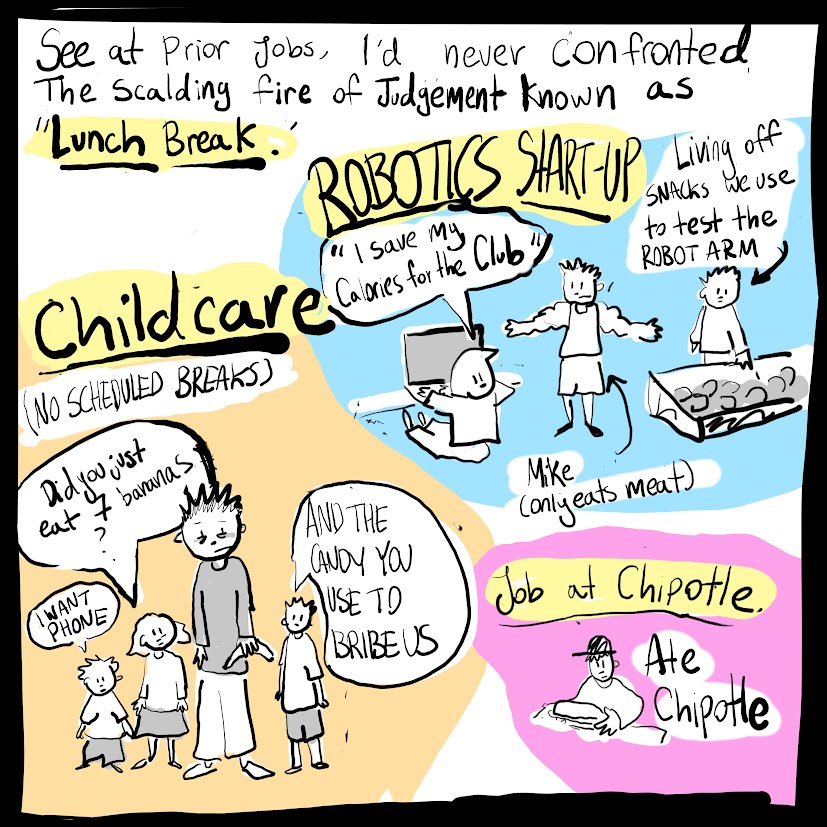 See at Prior Jobs, I'd never confronted
The scalding fire of Judgement known as
"Lunch Break."
ROBOTICS START-UP
Living off
SNACKS we use
to test the
ROBOT ARM
"I save my
Calories for the Club"
Mike
(only eats meat)
Childcare
(NO SCHEDULED BREAKS)
Did you just
eat 7 bananas
?
I WANT
PHONE
AND THE
CANDY YOU
USE TO
BRIBE US
Job at Chipotle.
Ate
Chipotle